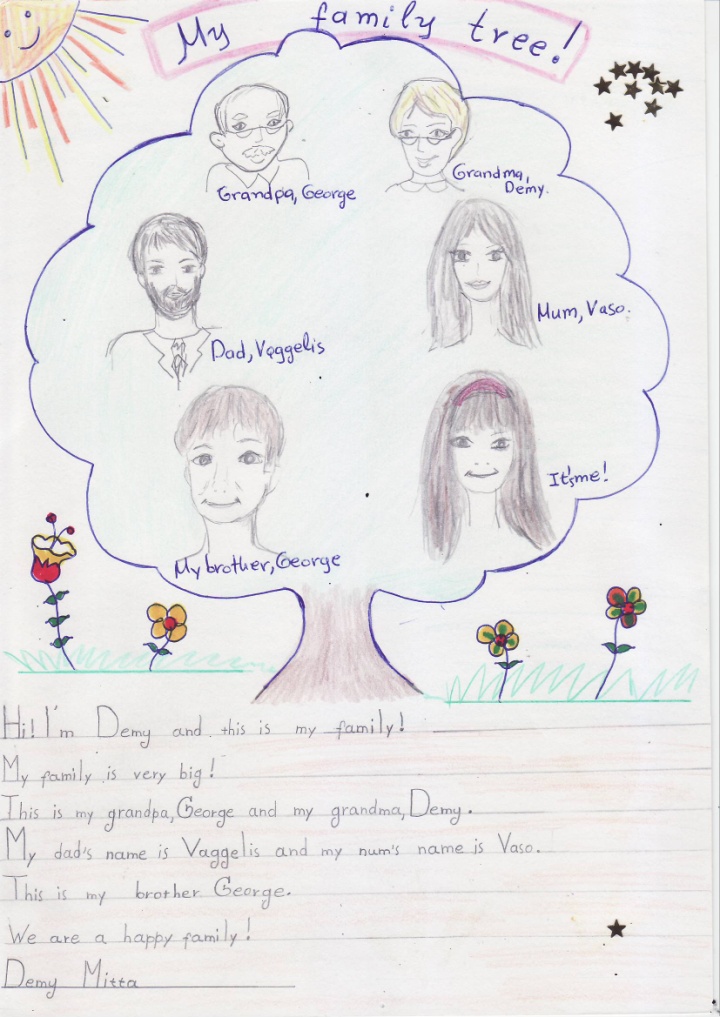 My family tree!
Grandpa, George
Grandma,
Demy.
Mum, Vaso.
Dad, Vaggelis
It'sme!
My brother, George
Hi! I'm Demy and this is my family!
My family is very big!
This is my grandpa, George and my grandma, Demy.
My dad's name is Vaggelis and my num's name is Vaso.
This is my brother George.
We are a happy family!
Demy Mitta